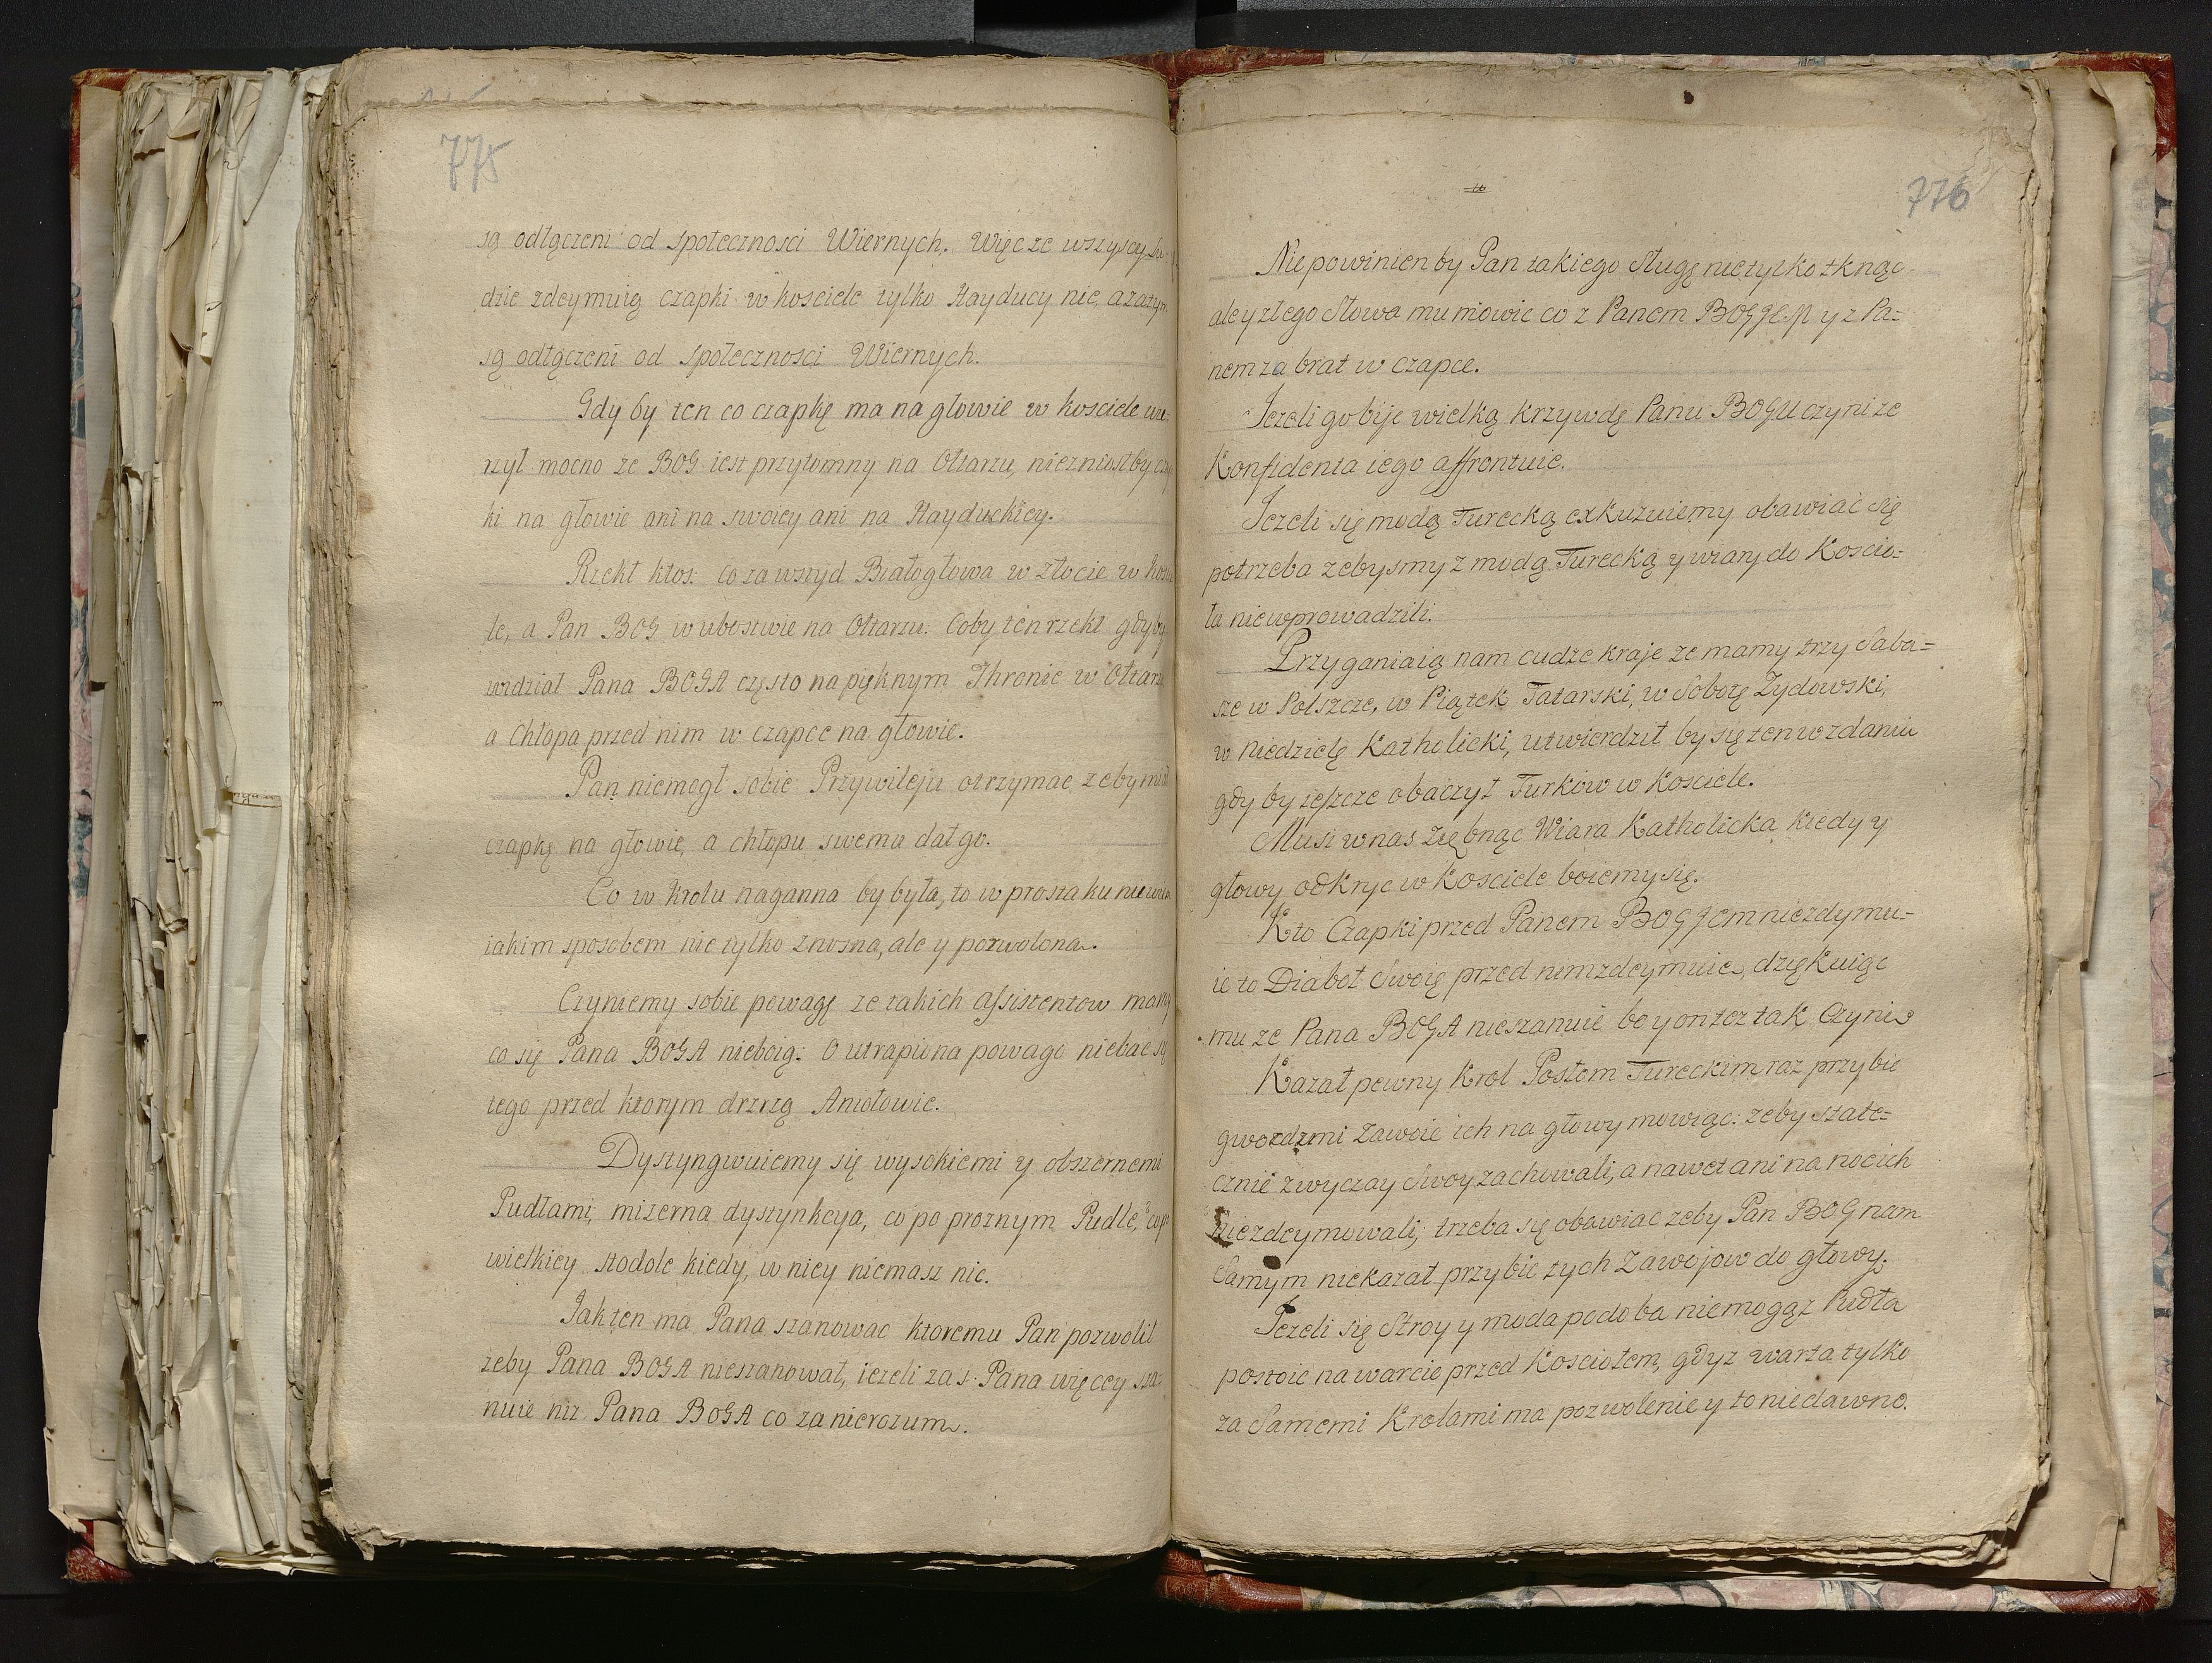 775
są odłączeni od społecznosci Wiernych. Więc ze wszyscy lu
dzie zdeymuią czapki w kosciele tylko Hayducy nie, a zatym
są odłączeni od społecznosci Wiernych.
Gdy by ten co czapkę ma na głowie w kosciele wie-
rzył mocno ze BOG iest przytomny na Ołtarzu, nie zniosłby czap
ki na głowie ani na swoiey ani na Hayduckiey.
Rzekł ktos: co za wstyd Białogłowa w złocie w kosc
le, a Pan BOG w ubostwie na Ołtarzu. Coby ten rzekł gdyby
widział Pana BOGA często na pięknym Thronie w Ołtarzu
a Chłopa przed nim w czapce na głowie.
Pan niemogł sobie Przywileju otrzymac zeby miał
czapkę na głowie, a chłopu swemu dał go.
Co w Krolu naganna by była, to w prostaku niewiem
iakim sposobem nie tylko znosna, ale y pozwolona.
Czyniemy sobie powagę ze takich assistentow mamy
co się Pana BOGA nieboią. O utrapiona powago niebac się
tego przed ktorym drzżą Aniołowie.
Dystyngwuiemy się wysokiemi y obszernemi
Pudłami, mizerna dystynkcya, co po proznym Pudle, co po
wielkiey stodole kiedy w niey niemasz nic.
Jak ten ma Pana szanowac ktoremu Pan pozwolił
zeby Pana BOGA nieszanował, iezeli zas Pana więcey sza-
nuie niz Pana BOGA co za nierozum.
776
Nie powinien by Pan takiego Sługę nie tylko tknąc
ale y złego Słowa mu mowic co z Panem BOGIEM y z Pa=
nem za brat w czapce.
Jezeli go bije wielką krzywdę Panu BOGU czyni ze
Konfidenta iego affrontuie.
Jezeli się modą Turecką exkuzuiemy obawiać się
potrzeba zebysmy z modą Turecką y wiary do Koscio=
ła niewprowadzili.
Przyganiaią nam cudze kraje ze mamy trzy Saba=
sze w Polszcze, w Piątek Tatarski, w Sobotę Zydowski,
w Niedzielę Katholicki, utwierdził by się ten w zdaniu
gdy by ieszcze obaczył Turkow w Kosciele.
Musi w nas ziębnąc Wiara Katholicka kiedy y
głowy odkryc w Kosciele boiemy się.
Kto Czapki przed Panem BOGIEM niezdymu=
ie to Diaboł Swoię przed nim zdeymuie, dziękuiąc
mu ze Pana BOGA nieszanuie bo y on tez tak czyni
Kazał pewny Krol Posłom Tureckim raz przybic
gwozdzmi Zawoie ich na głowy mowiąc: zeby state=
cznie zwyczay Swoy zachowali, a nawet ani na nocich
niezdeymowali; trzeba się obawiac zeby Pan BOG nam
Samym niekazał przybic tych Zawojow do głowy.
Jezeli się Stroy y moda podoba niemogąz Pudła
postoic na warcie przed Kosciołem, gdyz warta tylko
za Samemi Krolami ma pozwolenie y to niedawno.